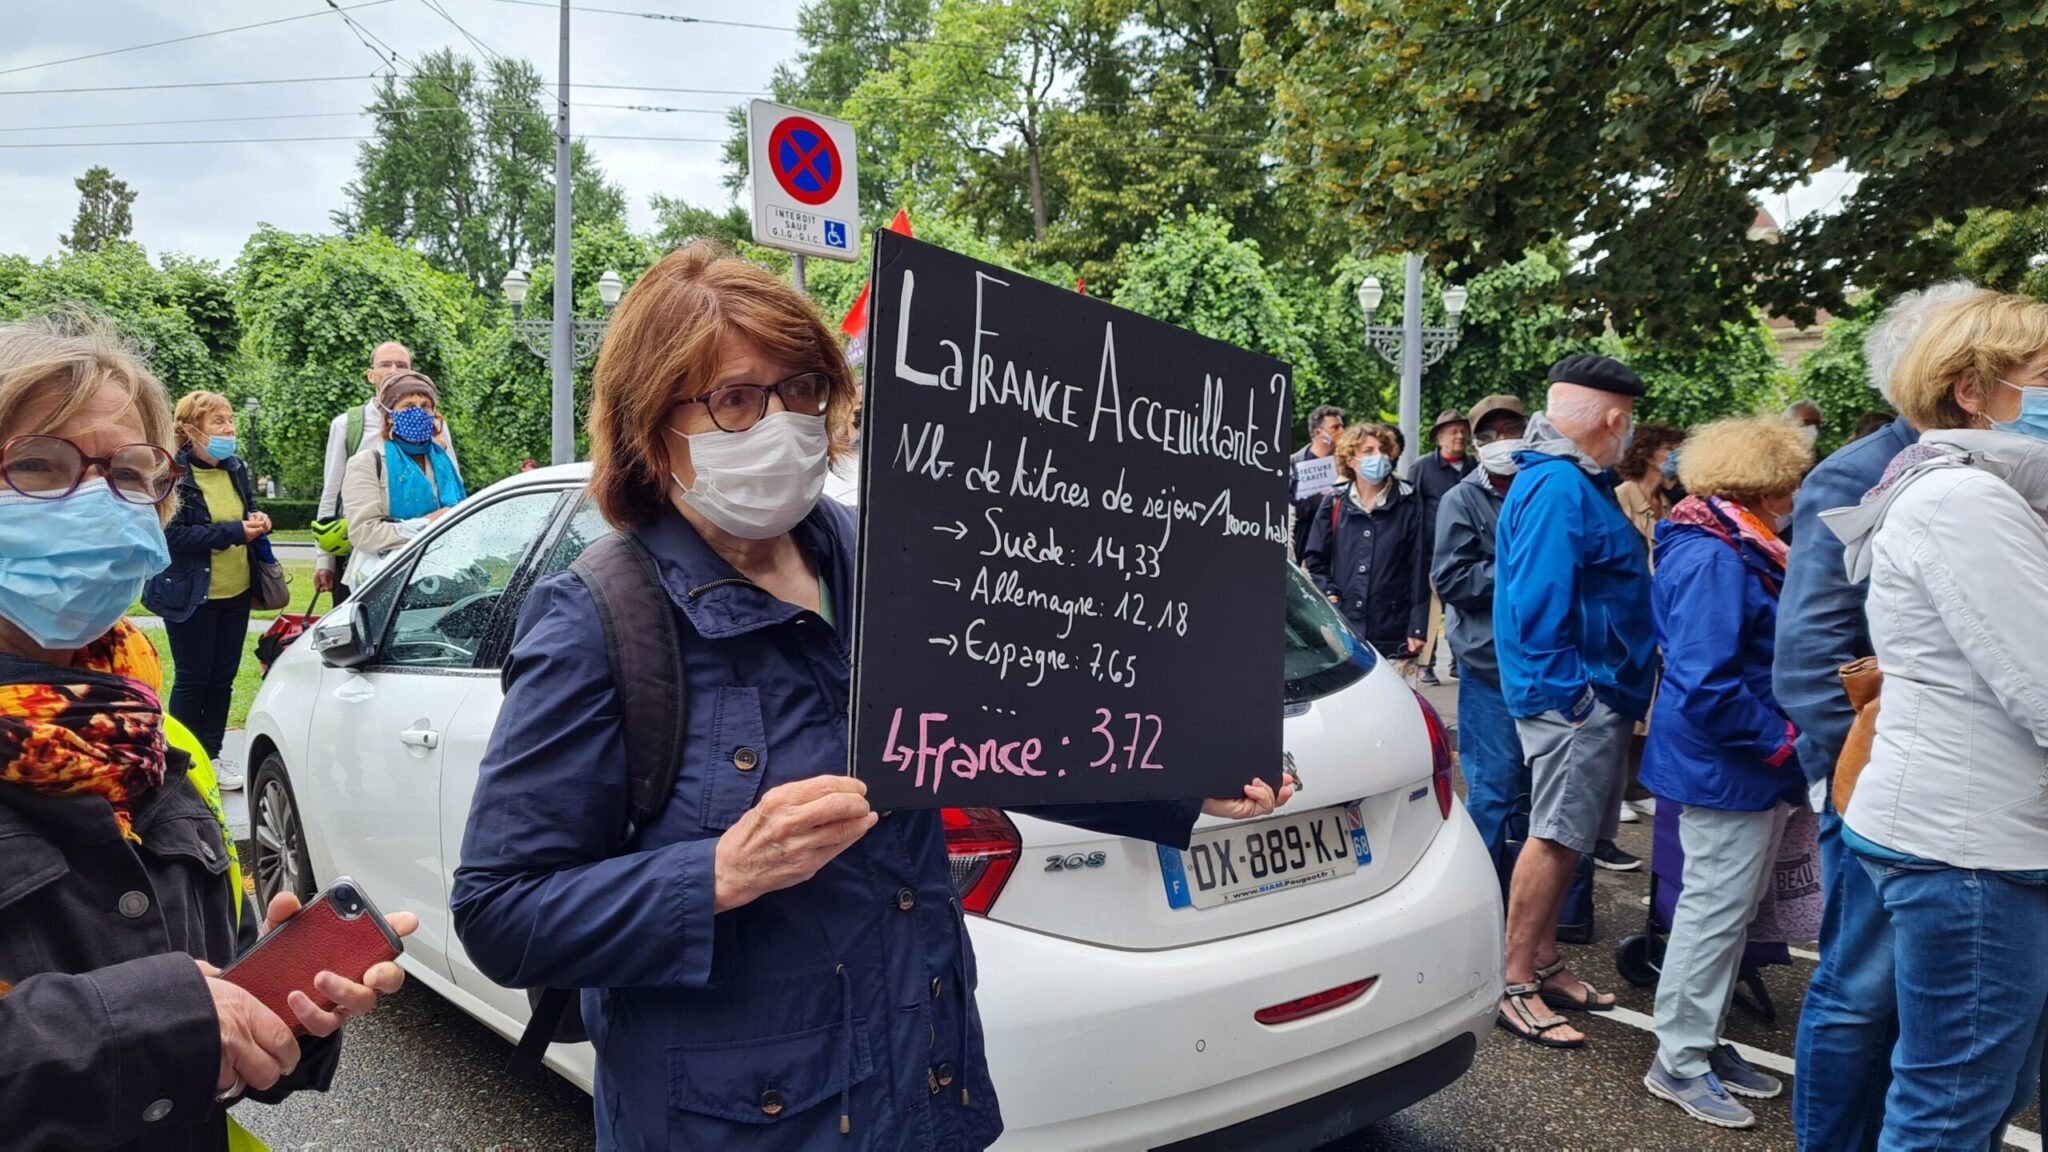 INTERDIT
SAUF
G.I.G.-G.I.C.
La France Accueillante?
Nb. de titres de séjour/1000 hab.
→ Suède: 14,33
→ Allemagne: 12,18
→ Espagne: 7,65
...
↳ France: 3,72
208
F DX-889-KJ 68
www.SIAM.Peugeot.fr
BEAU